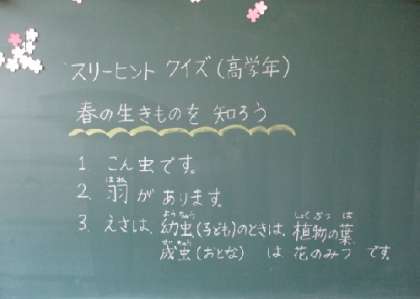 スリーヒント クイズ(高学年)
春の生きものを 知ろう
1. こん虫です。
はね
2. 羽が あります。
ようちゅう しょくぶつ は
3. えさは、幼虫(子ども)のときは、植物の葉、
せいちゅう
成虫(おとな) は 花のみつ です。